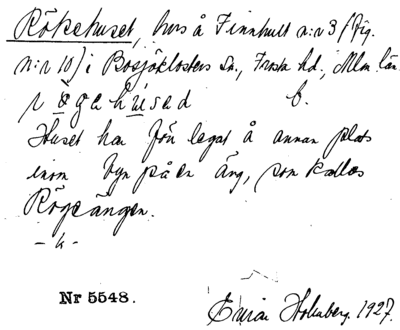 Rökehuset, hus å Finnhult n:r 3 (fig.
n:r 10) i Bosjöklosters sn., Frosta hd., Mlm. län.
rögahused b.
Huset har förr legat å annan plats
inom byn på en äng, som kallas
Rögeängen.
-"-
Nr 5548.
Ewiar Holmberg. 1927.